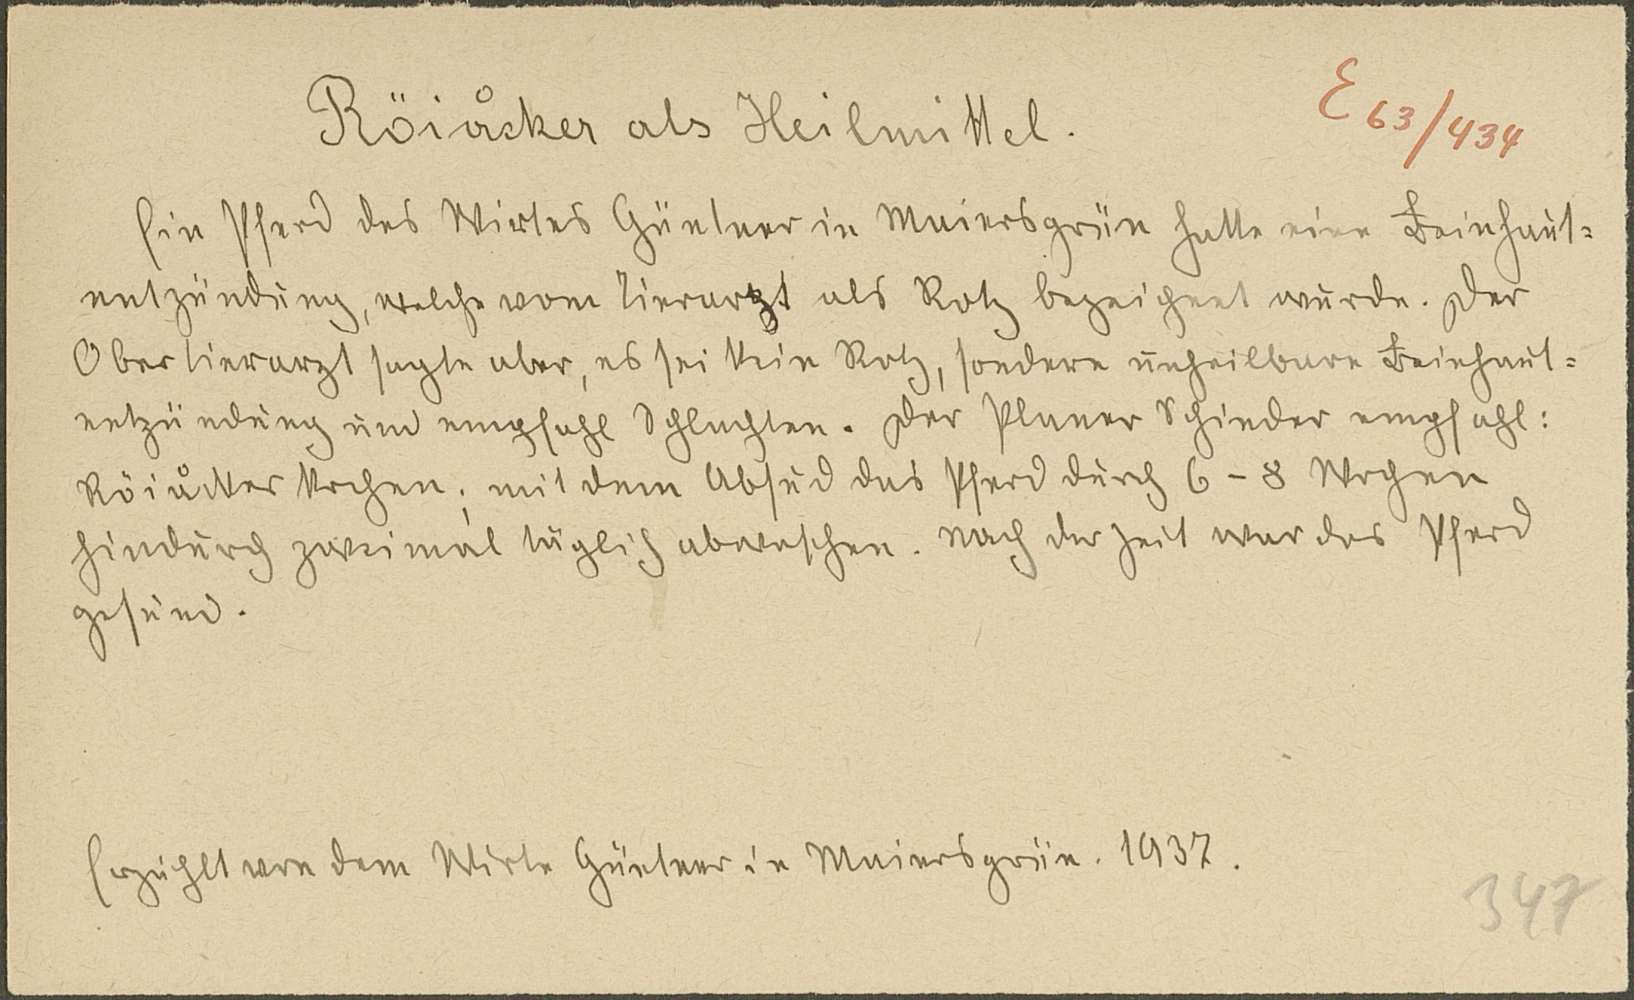 Röiåcker als Heilmittel.
E 63/434
Ein Pferd des Wirtes Güntner in Maiersgrün hatte eine Beinhaut=
entzündung, welche vom Tierarzt als Rotz bezeichnet wurde. Der
Obertierarzt sagte aber, es sei kein Rotz, sondern unheilbare Beinhaut=
entzündung und empfahl Schlachten. Der Planer Schinder empfahl:
Röiåcker kochen, mit dem Absud das Pferd durch 6 - 8 Wochen
hindurch zweimal täglich abwaschen. Nach der Zeit war das Pferd
gesund.
Erzählt von dem Wirte Güntner in Maiersgrün. 1937.
347